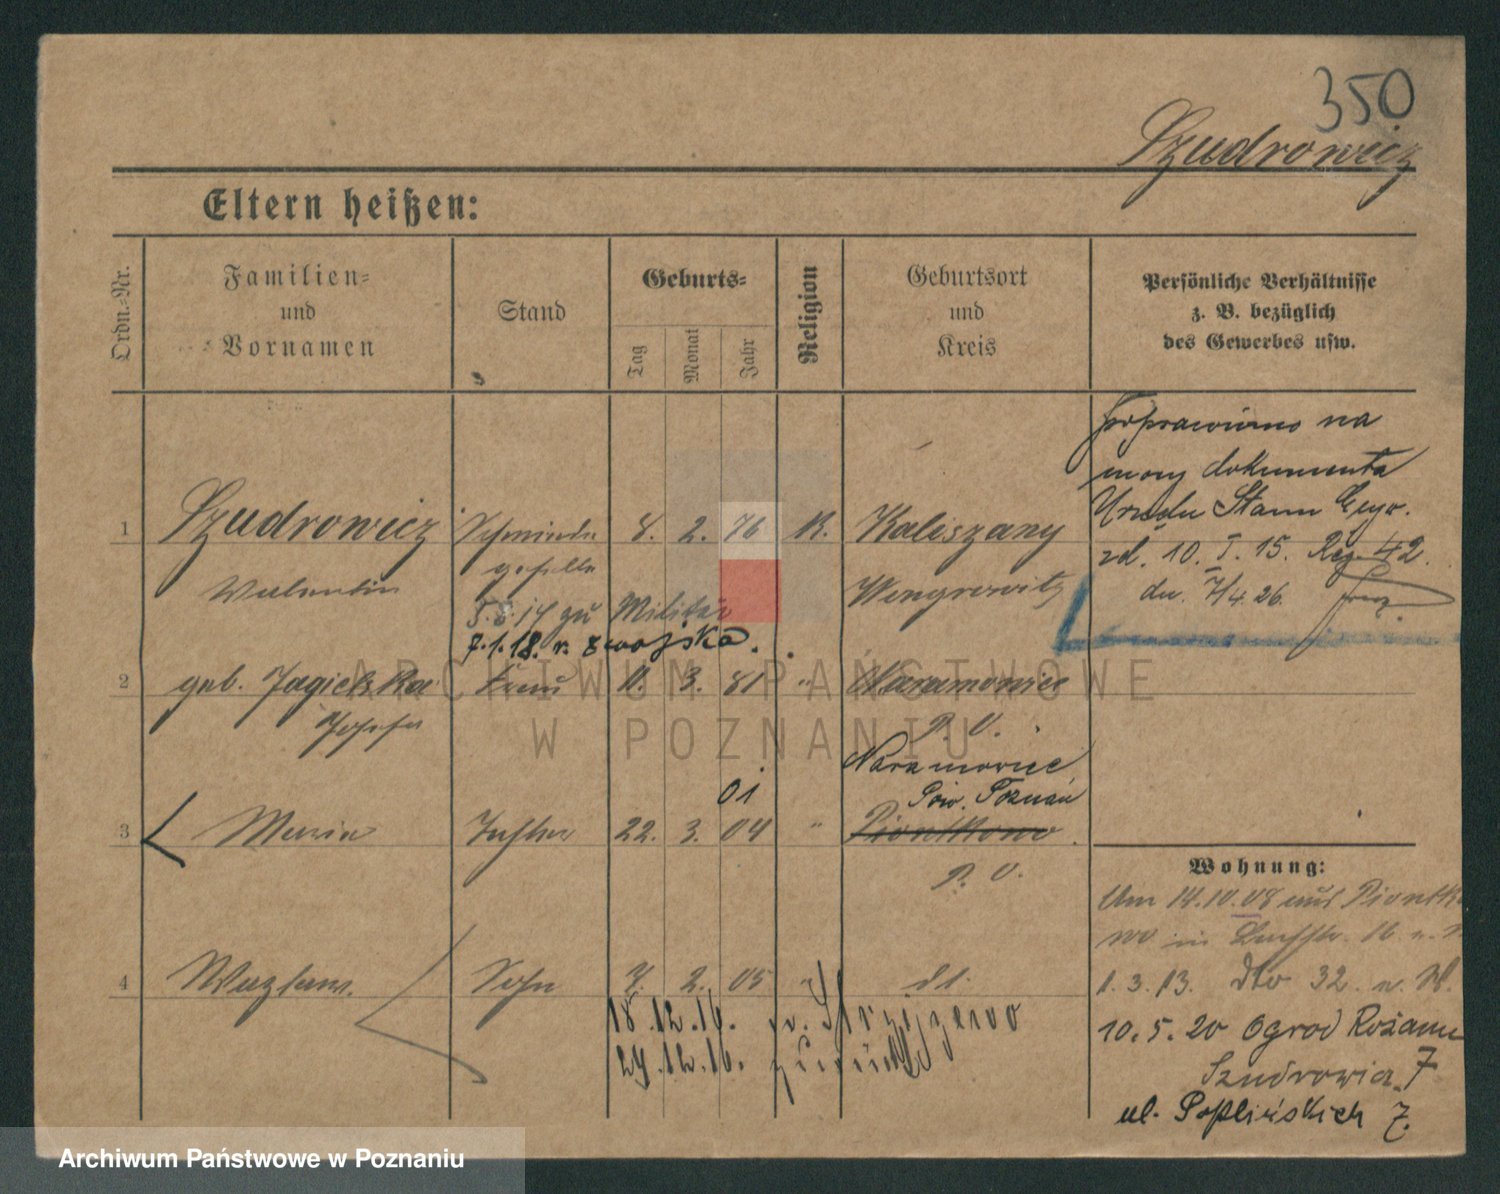 350
Szudrowicz
Eltern heißen:
Ordn.-Nr.
Familien-
und
Vornamen
Stand
Geburts-
Tag
Monat
Jahr
Religion
Geburtsort
und
Kreis
Persönliche Verhältnisse
z. B. bezüglich
des Gewerbes usw.
poprawiono na
mocy dokumentu
Urzędu Stanu Cyw.
zd. 10. I. 15. Rej. 42.
dn. 7/4.26.
1 Szudrowicz 8. 2. 76 K. Kaliszany
Valentin geselle Wongrowitz
5.8.14 zu Militär
7.1.18. v. z wojska.
2 geb. Jagielska Frau 11. 3. 81 " Naramowice
Josefa P. O.
Naramowice
01 Pow. Poznań
3 Maria Tochter 22. 3. 04 " Piontkowo
P. O.
Wohnung:
Am 14.10.08 aus Piontko
wo in 16
4 Wazlaw. Sohn 7. 2. 05 " dt.
1. 3. 13. dto 32. n. W.
18.12.16. n. Strzyzewo
24.12.16. zurück
10.5.20 Ogrod Rożanu
Szudrowicz 7
ul. Poplińskich 7.
ARCHIWUM PAŃSTWOWE
W POZNANIU
Archiwum Państwowe w Poznaniu